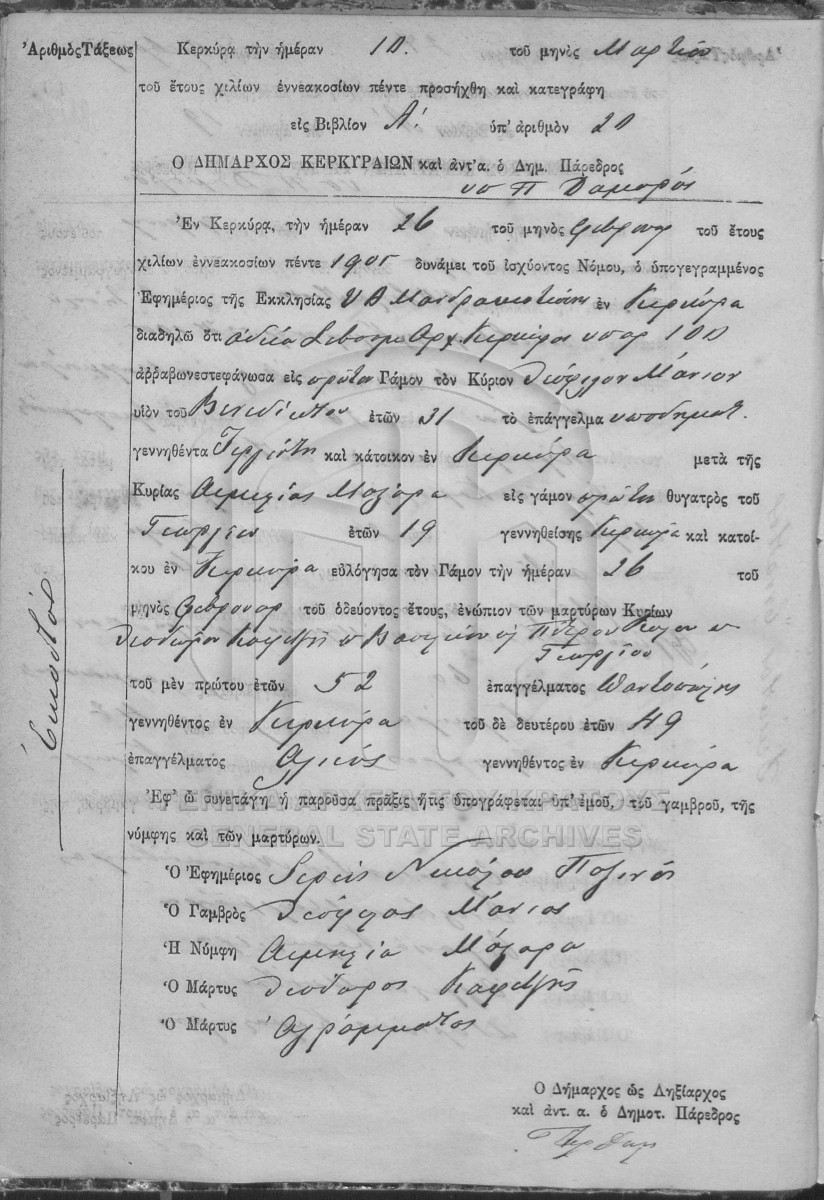 Ἀριθμὸς Τάξεως
Κερκύρᾳ τὴν ἡμέραν 10. τοῦ μηνὸς Μαρτίου
τοῦ ἔτους χιλίων ἐννεακοσίων πέντε προσήχθη καὶ κατεγράφη
εἰς Βιβλίον Α! ὑπ' ἀριθμὸν 20
Ο ΔΗΜΑΡΧΟΣ ΚΕΡΚΥΡΑΙΩΝ καὶ ἀντ'α. ὁ Δημ. Πάρεδρος
Ἐν Κερκύρᾳ, τὴν ἡμέραν 26 τοῦ μηνὸς Φεβρουαρ τοῦ ἔτους
χιλίων ἐννεακοσίων πέντε 1905 δυνάμει τοῦ ἰσχύοντος Νόμου, ὁ ὑπογεγραμμένος
Ἐφημέριος τῆς Ἐκκλησίας Υ Θ Μανδρακιωτίσης ἐν Κερκύρα
διαδηλῶ ὅτι ἀδεία Κερκύρας
ἀρραβωνεστεφάνωσα εἰς πρῶτον Γάμον τὸν Κύριον Θεόφιλον Μάνιον
υἱὸν τοῦ Βενεδίκτου ἐτῶν 31 τὸ ἐπάγγελμα υποδηματ.
γεννηθέντα Τεργέστη καὶ κάτοικον ἐν Κερκύρα μετὰ τῆς
Κυρίας Αιμιλίας Μόζορα εἰς γάμον πρῶτον θυγατρὸς τοῦ
Γεωργίου ἐτῶν 19 γεννηθείσης Κερκύρα καὶ κατοί-
κου ἐν Κερκύρα εὐλόγησα τὸν Γάμον τὴν ἡμέραν 26 τοῦ
μηνὸς Φεβρουαρ τοῦ ὁδεύοντος ἔτους, ἐνώπιον τῶν μαρτύρων Κυρίων
Θεοδώρου Καφετζῆ Βασιλείου Πέτρου
Γεωργίου
τοῦ μὲν πρώτου ἐτῶν 52 ἐπαγγέλματος Παντοπώλης
γεννηθέντος ἐν Κερκύρα τοῦ δὲ δευτέρου ἐτῶν 49
ἐπαγγέλματος Αλιεύς γεννηθέντος ἐν Κερκύρα
Ἐφ' ᾧ συνετάγη ἡ παροῦσα πρᾶξις ἥτις ὑπογράφεται ὑπ' ἐμοῦ, τοῦ γαμβροῦ, τῆς
νύμφης καὶ τῶν μαρτύρων.
ΓΕΝΙΚΑ ΑΡΧΕΙΑ ΤΟΥ ΚΡΑΤΟΥΣ
GENERAL STATE ARCHIVES
Ὁ Ἐφημέριος Ιερεύς Νικόλαος
Ὁ Γαμβρὸς Θεόφιλος Μάνιος
Ἡ Νύμφη Αιμιλία Μόζορα
Ὁ Μάρτυς Θεόδωρος Καφετζῆς
Ὁ Μάρτυς Αγράμματος
Ὁ Δήμαρχος ὡς Ληξίαρχος
καὶ ἀντ. α. ὁ Δημοτ. Πάρεδρος
Εἰκοστός